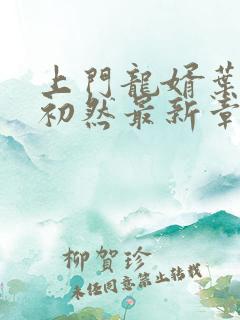 上門龍婿葉
初然最新章
柳賀珍
未经同意禁止转载